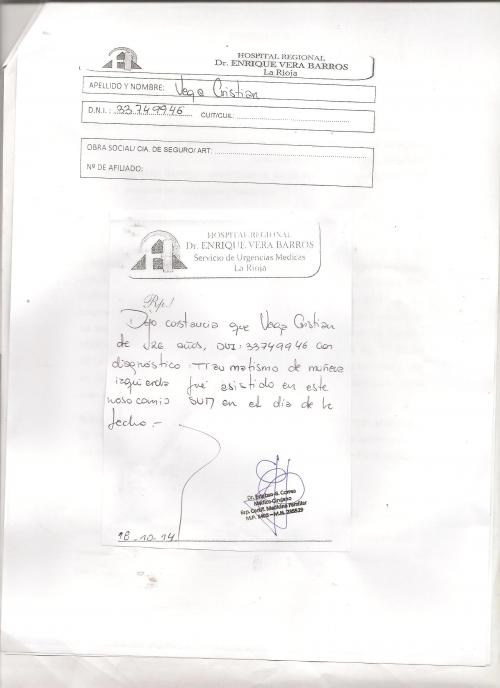 HOSPITAL REGIONAL
Dr. ENRIQUE VERA BARROS
La Rioja
APELLIDO Y NOMBRE: Vega Cristian
D.N.I.: 33749946 CUIT/CUIL:
OBRA SOCIAL/ CIA. DE SEGURO/ ART:
Nº DE AFILIADO:
HOSPITAL REGIONAL
Dr. ENRIQUE VERA BARROS
Servicio de Urgencias Medicas
La Rioja
Rp./
Dejo constancia que Vega Cristian
de 26 años, DNI: 33749946 con
diagnóstico: Traumatismo de muñeca
izquierda fué asistido en este
nosocomio en el dia de la
fecha.-
Médico Cirujano
Esp. Certif. Medicina Familiar
18-10-14